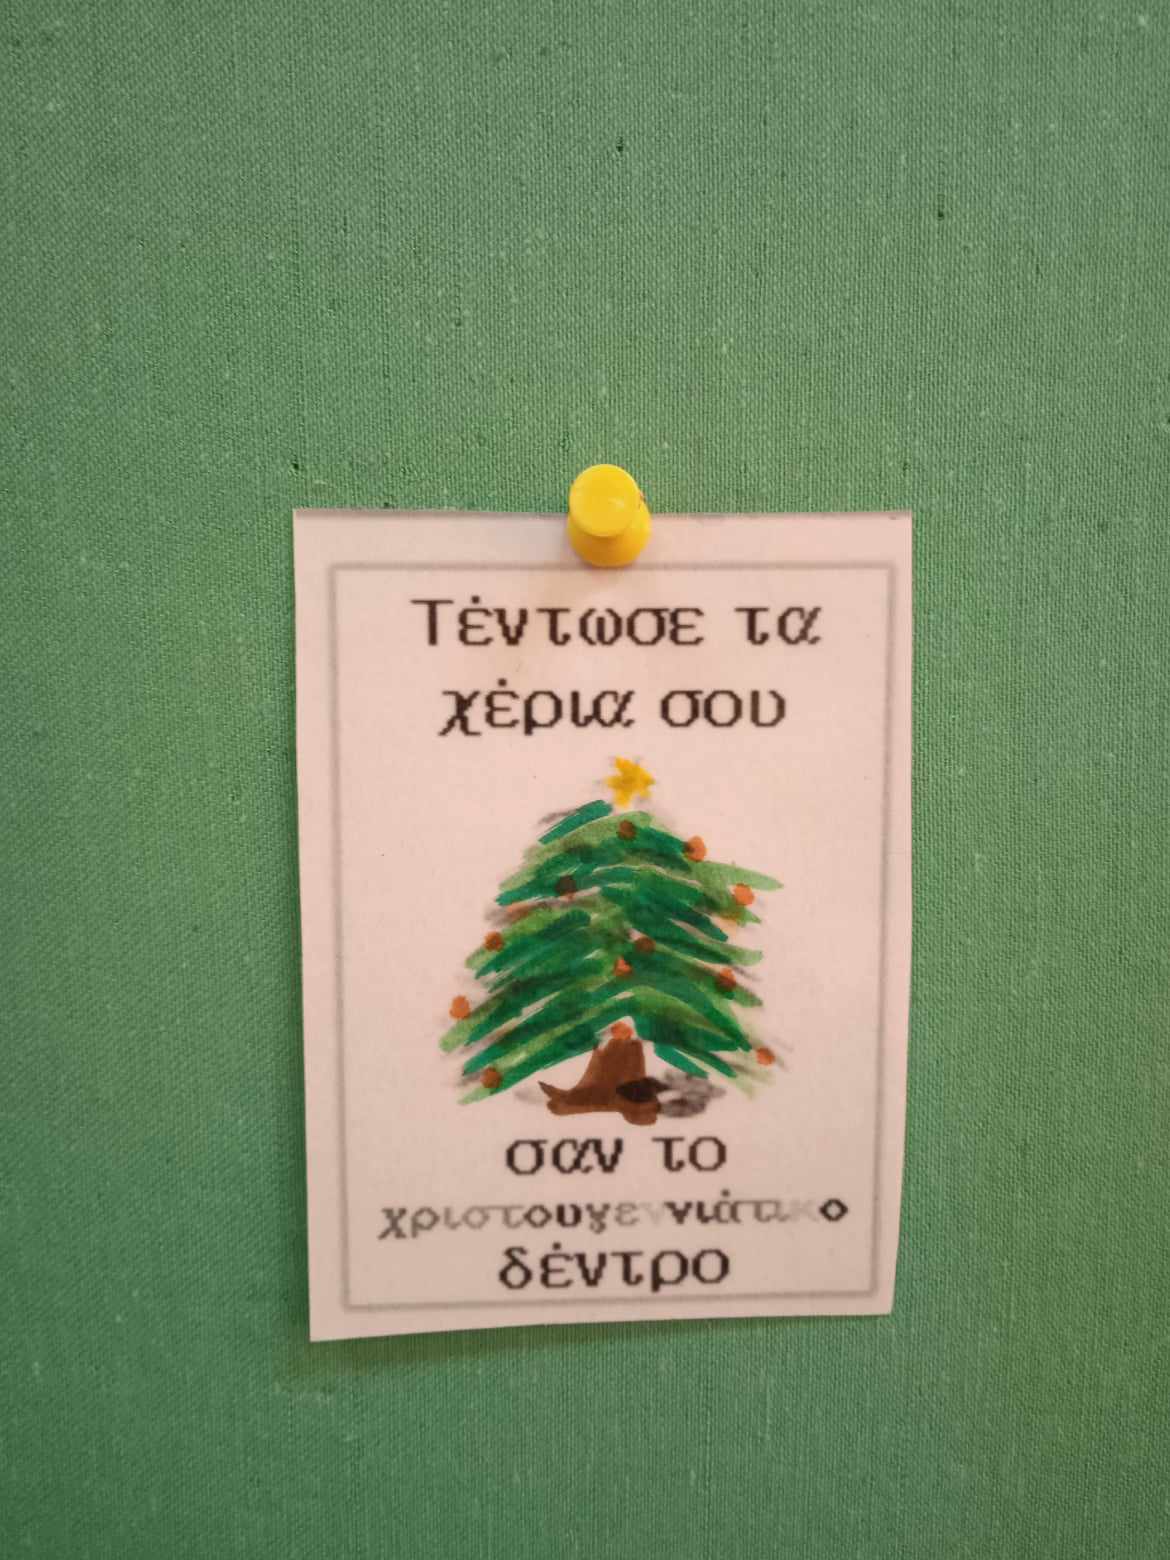 Τέντωσε τα
χέρια σου
σαν το
χριστουγεννιάτικο
δέντρο